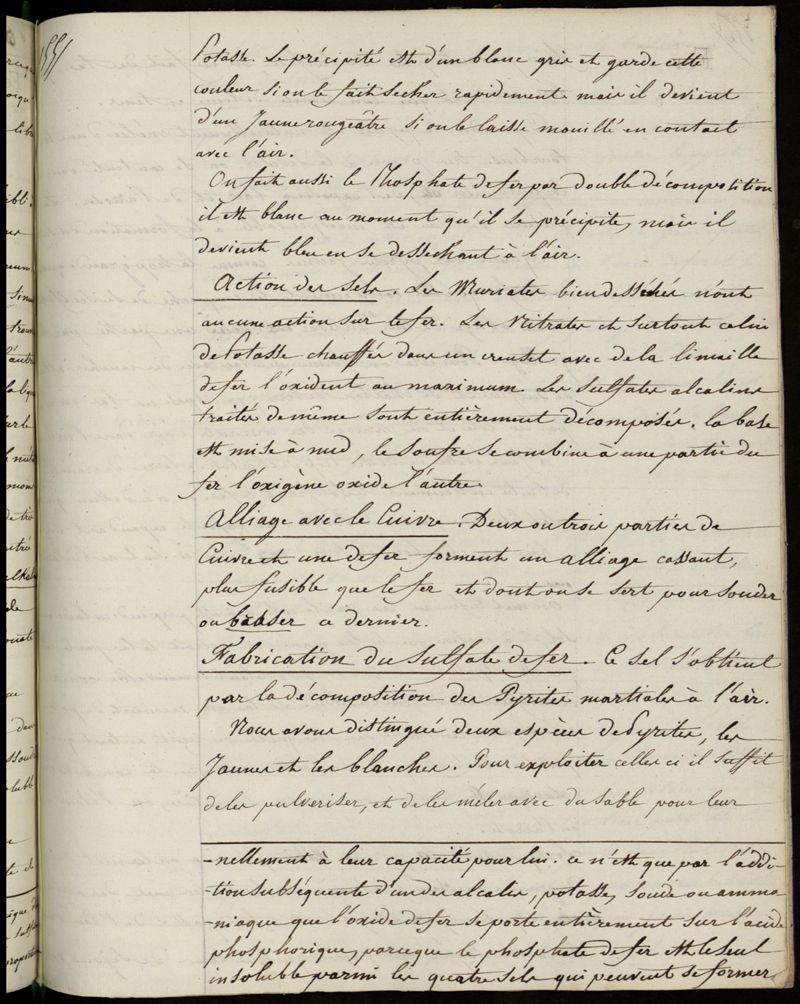 Potasse. Le précipité est d'un blanc gris et garde cette
couleur si on le fait secher rapidement mais il devient
d'un Jaune rougeâtre si on le laisse mouillé en contact
avec l'air.
On fait aussi le Phosphate de fer par double décomposition
il est blanc au moment qu'il se précipite, mais il
devient bleu en se dessechant à l'air.
Action des sels. Les Muriates bien desséchés n'ont
aucune action sur le fer. Les Nitrates et surtout celui
de Potasse chauffés dans un creuset avec de la limaille
de fer l'oxident au maximum. Les Sulfates alcalins
traités de même sont entièrement décomposés. la base
est mise à nud, le soufre se combine à une partie du
fer l'oxigène oxide l'autre.
Alliage avec le Cuivre. Deux ou trois parties de
Cuivre et une de fer forment un alliage cassant,
plus fusible que le fer et dont on se sert pour souder
ou braser ce dernier.
Fabrication du Sulfate de fer. Ce sel s'obtient
par la décomposition des Pyrites martiales à l'air.
Nous avons distingué deux espèces de Pyrites, les
Jaunes et les blanches. Pour exploiter celles ci il suffit
de les pulveriser, et de les mêler avec du sable pour leur
-nellement à leur capacité pour lui. ce n'est que par l'addi-
-tion subséquente d'un des alcalis, potasse, soude ou ammo
-niaque que l'oxide de fer se porte entièrement sur l'acide
phosphorique, parceque le phosphate de fer est le seul
insoluble parmi les quatre sels qui peuvent se former